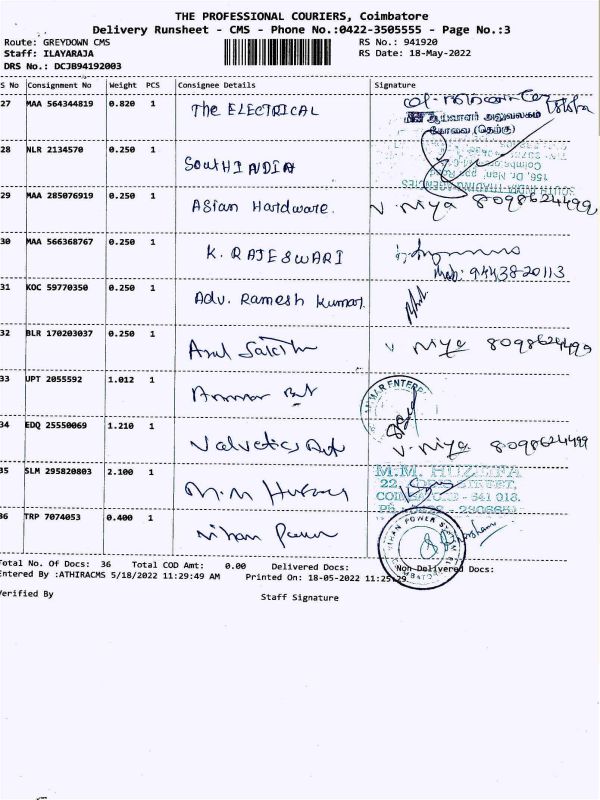 THE PROFESSIONAL COURIERS, Coimbatore
Delivery Runsheet - CMS - Phone No.:0422-3505555 - Page No.:3
Route: GREYDOWN CMS
RS No.: 941920
Staff: ILAYARAJA
RS Date: 18-May-2022
DRS No.: DCJB94192003
S No Consignment No Weight PCS Consignee Details Signature
27 MAA 564344819 0.820 1 The ELECTRICAL
அலுவலகம்
கோவை (தெற்கு)
28 NLR 2134570 0.250 1 South INDIA
156, Dr. Nan
SOUTH INDIA TRADING AGENCIES
29 MAA 285076919 0.250 1 Asian Hardware. V. Niya 8098624499
30 MAA 566368767 0.250 1 K. RAJESWARI
Mob: 94438-20113
31 KOC 59770350 0.250 1 Adv. Ramesh Kumar
32 BLR 170203037 0.250 1 V Niya 8098624499
33 UPT 2055592 1.012 1
34 EDQ 25550069 1.210 1 V. Niya 8098624499
35 SLM 295820803 2.100 1
M.M. HUZEIFA
22, STREET,
COIMBATORE - 641 018.
36 TRP 7074053 0.400 1 Nihan Power
NIHAN POWER SYSTEM
Total No. Of Docs: 36 Total COD Amt: 0.00 Delivered Docs: Non Delivered Docs:
Entered By :ATHIRACMS 5/18/2022 11:29:49 AM Printed On: 18-05-2022 11:25:29
Verified By
Staff Signature